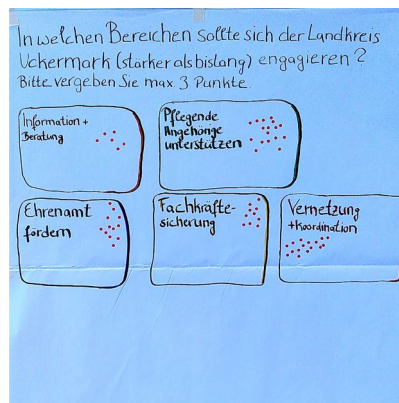 In welchen Bereichen sollte sich der Landkreis
Uckermark (stärker als bislang) engagieren?
Bitte vergeben Sie max. 3 Punkte.
Information +
Beratung
Pflegende
Angehörige
unterstützen
Ehrenamt
fördern
Fachkräfte-
sicherung
Vernetzung
+Koordination